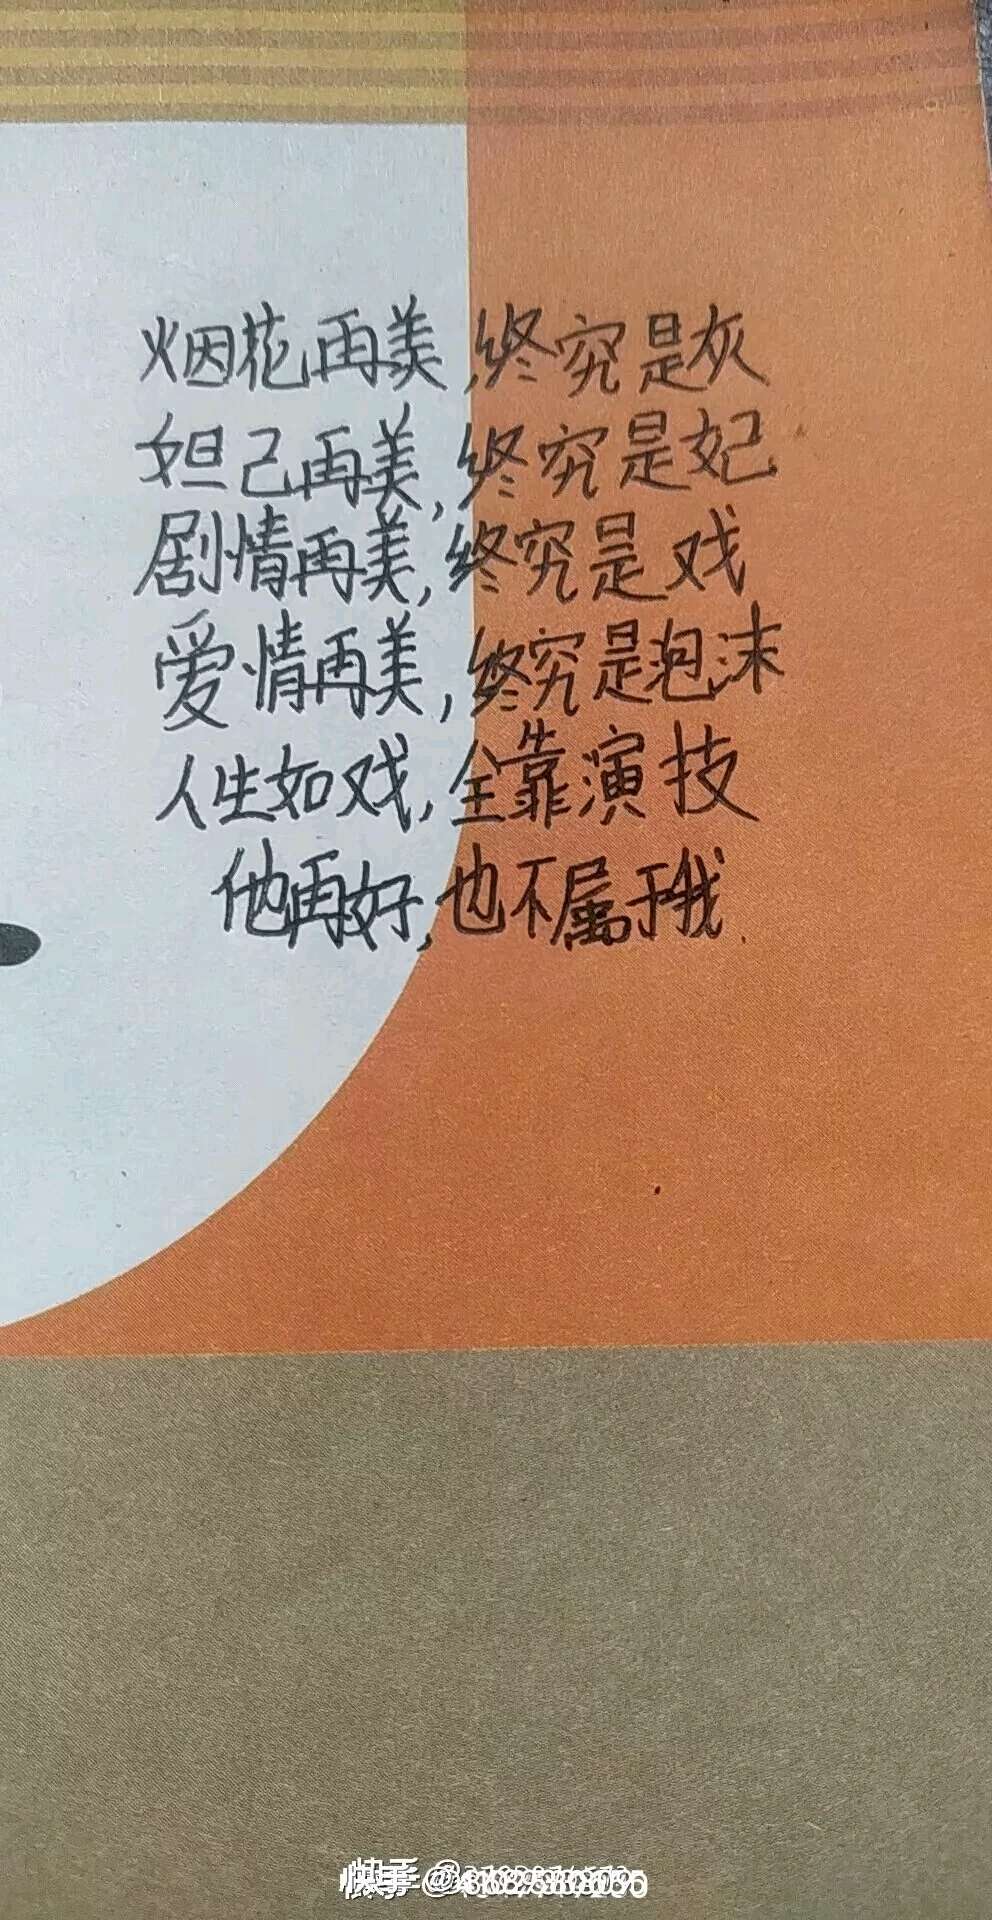 烟花再美,终究是灰
妲己再美,终究是妃
剧情再美,终究是戏
爱情再美,终究是泡沫
人生如戏,全靠演技
他再好,也不属于我.
快手